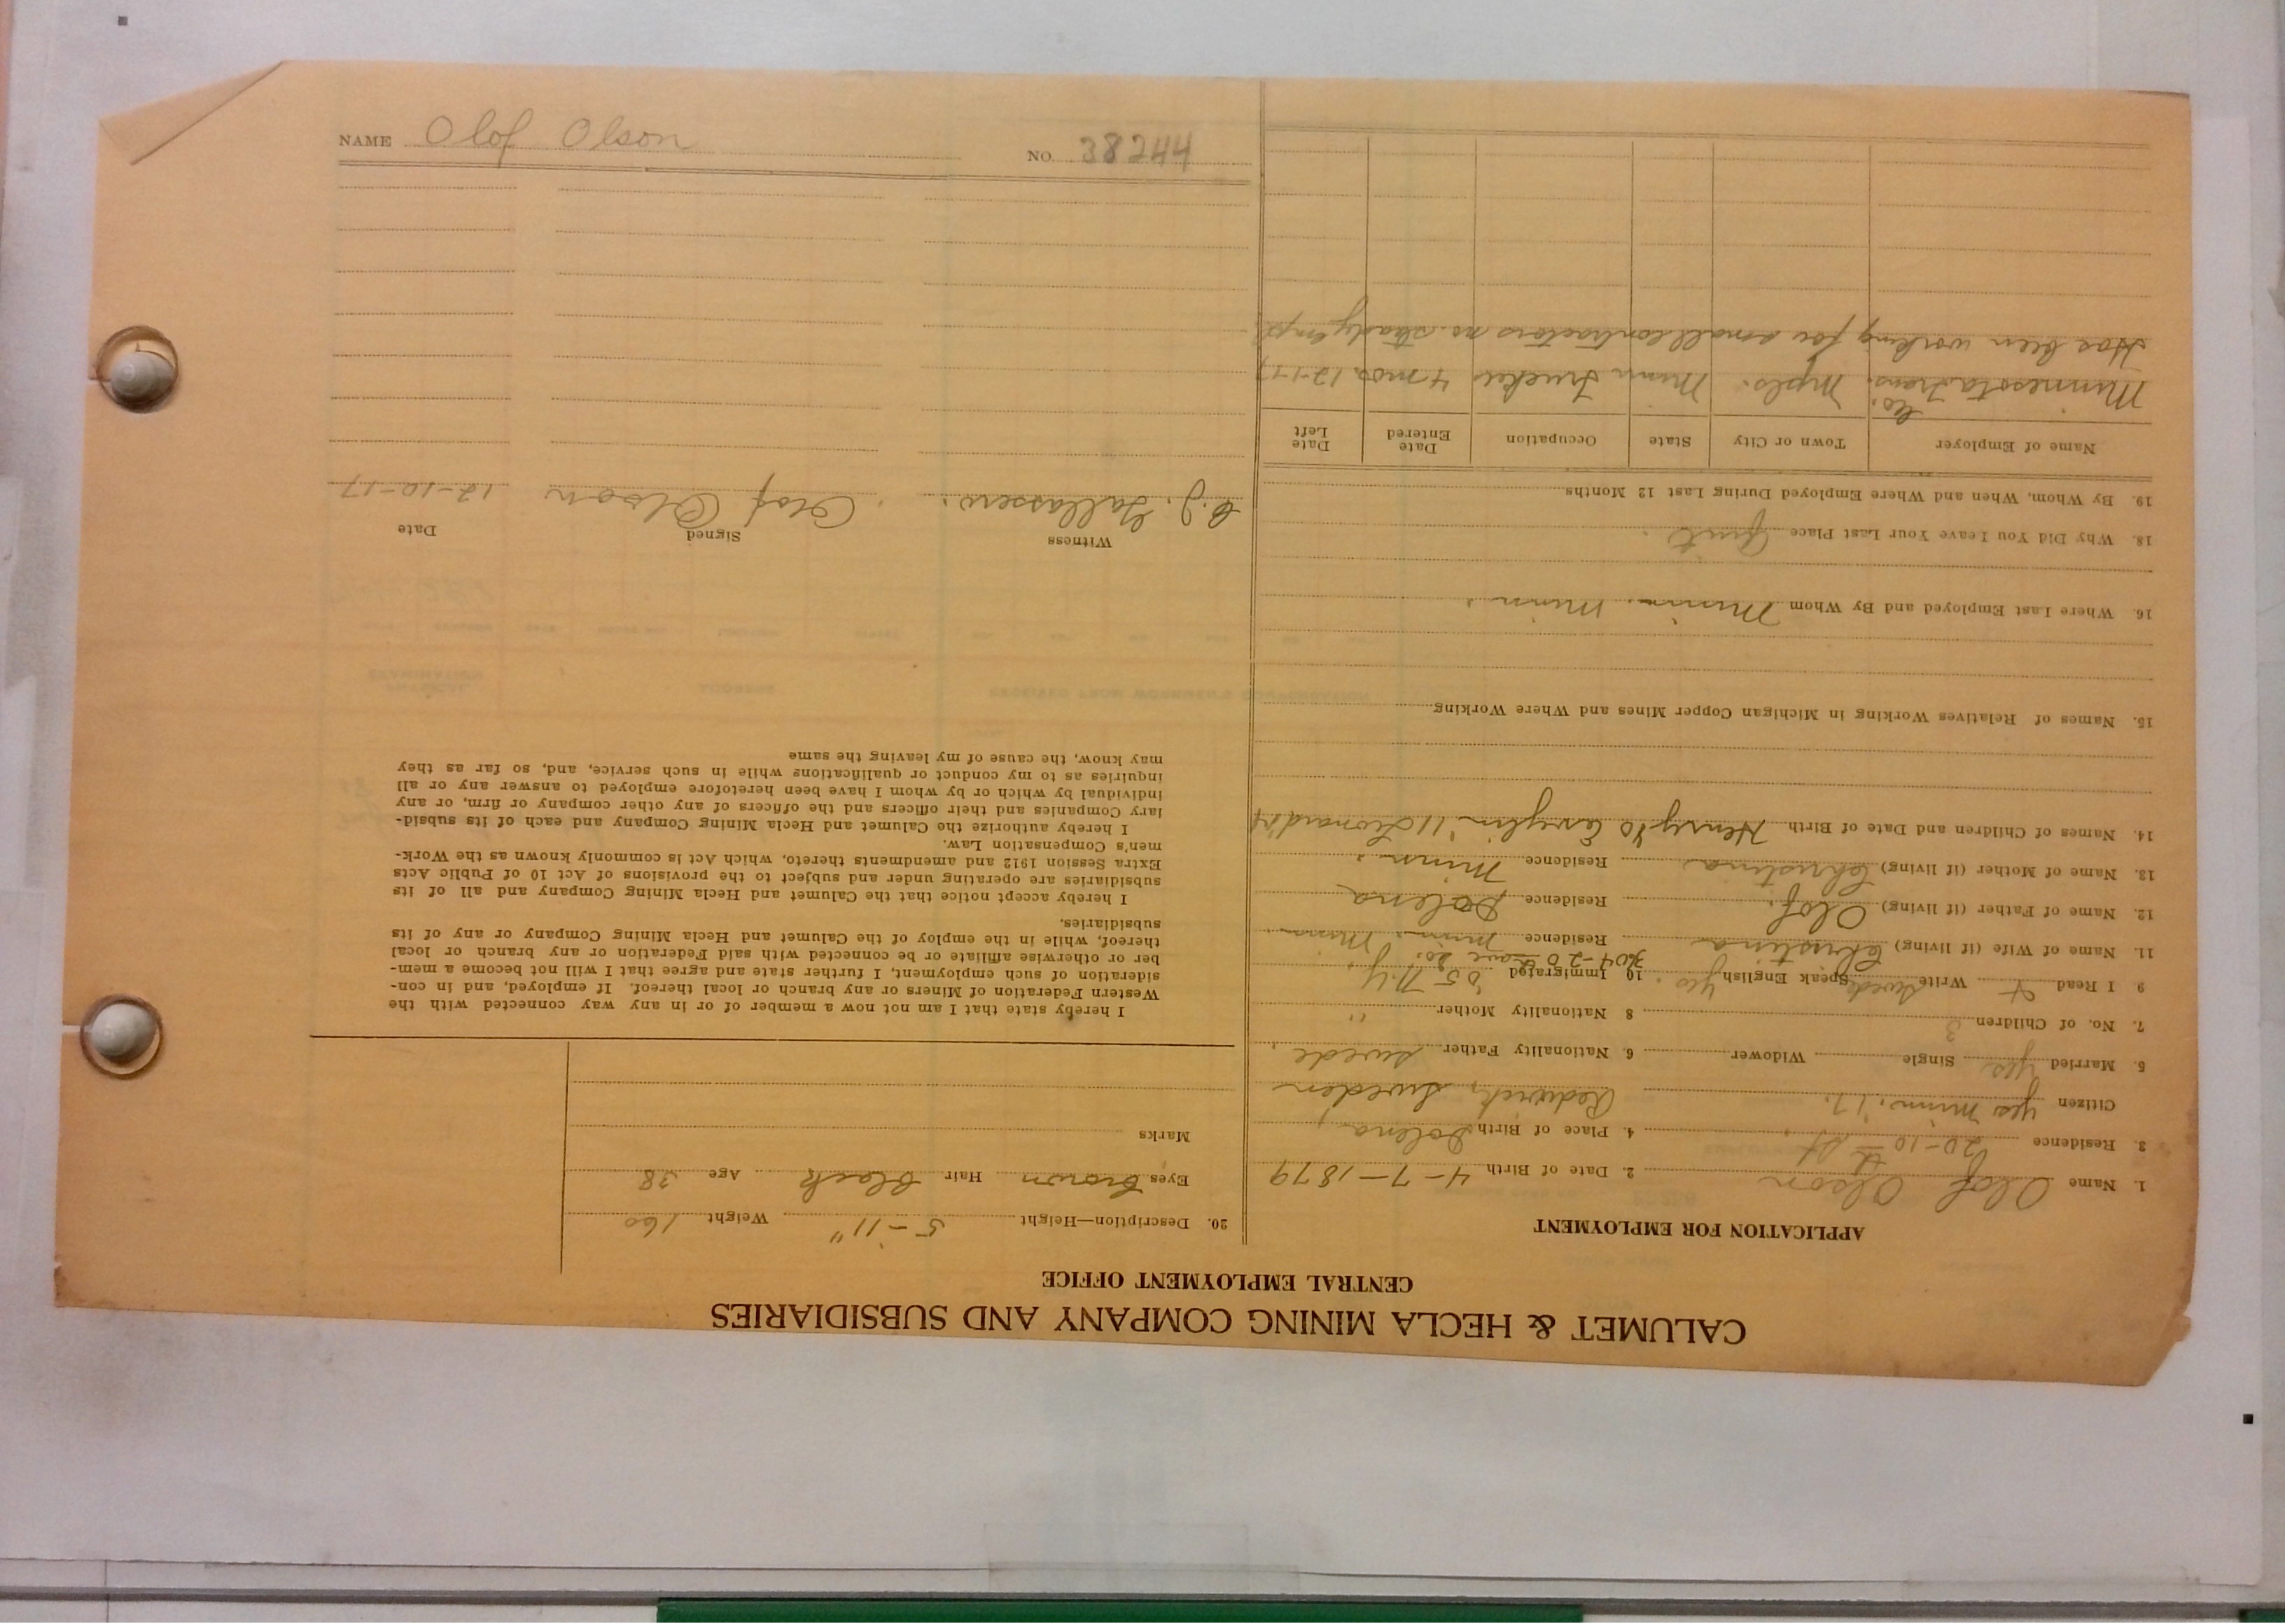 NAME Olof Olson NO. 38244
CALUMET & HECLA MINING COMPANY AND SUBSIDIARIES
CENTRAL EMPLOYMENT OFFICE
APPLICATION FOR EMPLOYMENT
1. Name Olof Olson 2. Date of Birth 4-7-1879
3. Residence 20-10th St. 4. Place of Birth Dolena,
Citizen yes Minn. '17. Sweden
5. Married yes Single Widower 6. Nationality Father Swede
7. No. of Children 3 8 Nationality Mother "
9 I Read + Write Swede Speak English yes. 10 Immigrated '05 N.Y.
3204-20th Ave So.
11. Name of Wife (if living) Christina Residence Minn. Minn.
12. Name of Father (if living) Olof. Residence Dolena
13. Name of Mother (if living) Christina Residence Minn.
14. Names of Children and Date of Birth Henry '10 Evelyn '11 Leonard
15. Names of Relatives Working in Michigan Copper Mines and Where Working
16. Where Last Employed and By Whom Minn. Minn.
18. Why Did You Leave Your Last Place Quit.
19. By Whom, When and Where Employed During Last 12 Months
Name of Employer Town or City State Occupation Date Entered Date Left
Minnesota Trans. Co. Mpls. Minn Trucker 4 mos. 12-1-17
Has been working for small contractors no steady emp.
20. Description—Height 5-11" Weight 160
Eyes Brown Hair Black Age 38
Marks
I hereby state that I am not now a member of or in any way connected with the
Western Federation of Miners or any branch or local thereof. If employed, and in con-
sideration of such employment, I further state and agree that I will not become a mem-
ber or otherwise affiliate or be connected with said Federation or any branch or local
thereof, while in the employ of the Calumet and Hecla Mining Company or any of its
subsidiaries.
I hereby accept notice that the Calumet and Hecla Mining Company and all of its
subsidiaries are operating under and subject to the provisions of Act 10 of Public Acts
Extra Session 1912 and amendments thereto, which Act is commonly known as the Work-
men's Compensation Law.
I hereby authorize the Calumet and Hecla Mining Company and each of its subsid-
iary Companies and their officers and the officers of any other company or firm, or any
individual by which or by whom I have been heretofore employed to answer any or all
inquiries as to my conduct or qualifications while in such service, and, so far as they
may know, the cause of my leaving the same
Witness Signed Date
Olof Olson 12-10-17